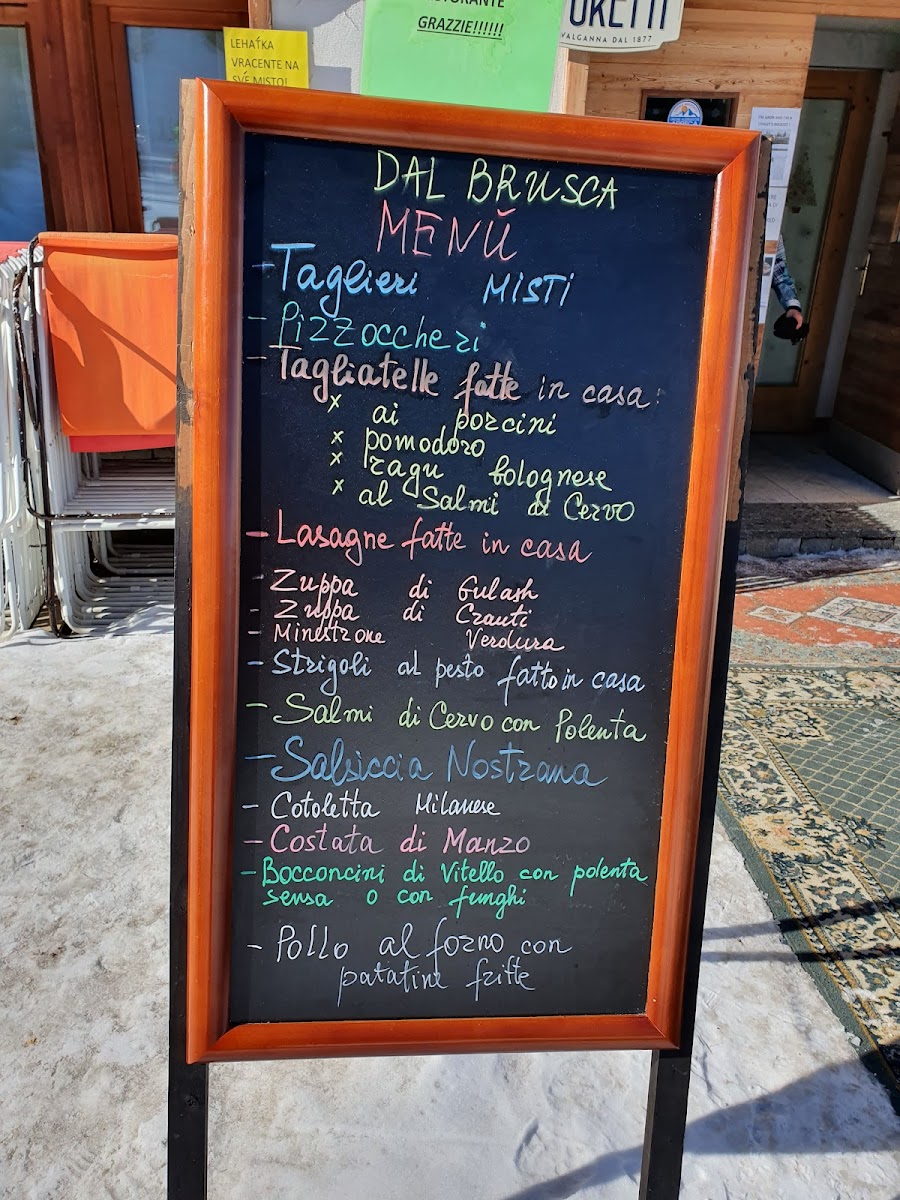 RISTORANTE
GRAZZIE!!!!!!
VALGANNA DAL 1877
LEHAŤKA
VRACENTE NA
SVÉ MISTO!
DAL BRUSCA
MENŬ
- Taglieri MISTI
- Pizzoccheri
- Tagliatelle fatte in casa:
x ai porcini
x pomodoro
x ragu bolognese
x al Salmi di Cervo
- Lasagne fatte in casa
- Zuppa di Gulash
- Zuppa di Crauti
- Minestrone Verdura
- Strigoli al pesto fatto in casa
- Salmi di Cervo con Polenta
- Salsiccia Nostrana
- Cotoletta Milanese
- Costata di Manzo
- Bocconcini di Vitello con polenta
sensa o con funghi
- Pollo al forno con
patatine fritte